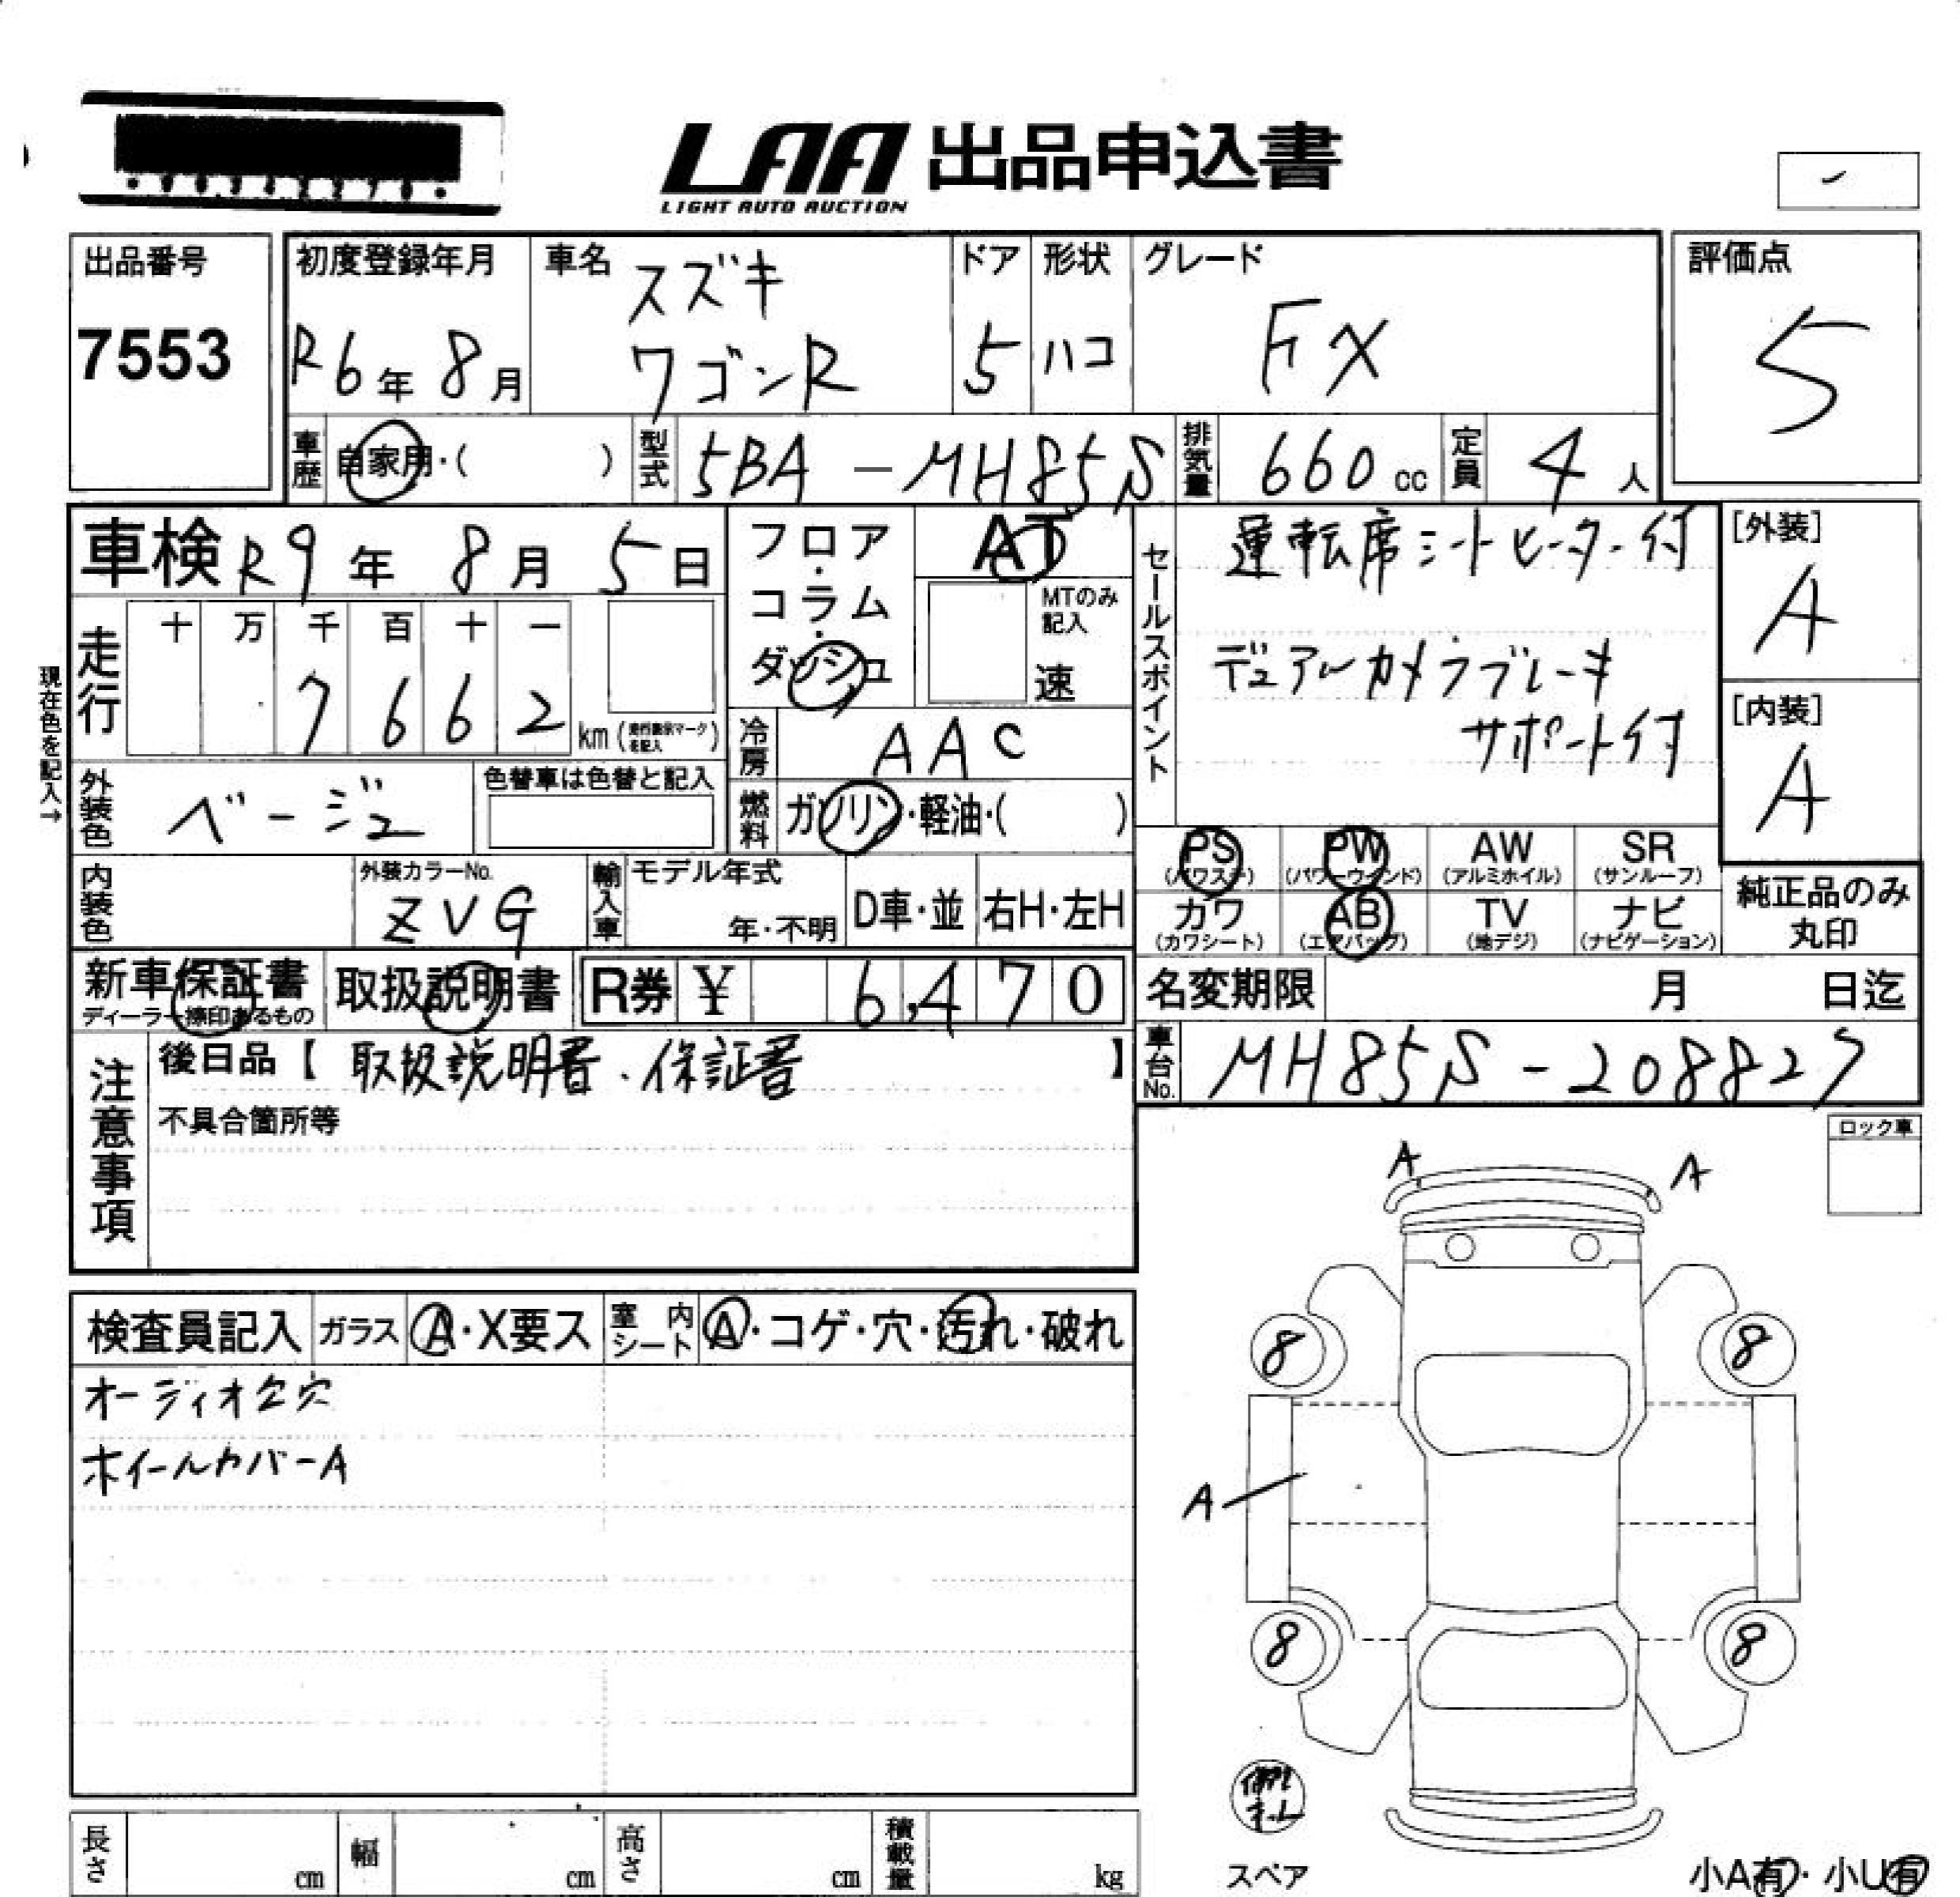 LAA 出品申込書
LIGHT AUTO AUCTION
出品番号
7553
初度登録年月
R6年 8月
車名
スズキ
ワゴンR
ドア
5
形状
ハコ
グレード
FX
評価点
5
車歴 自家用・( )
型式 5BA-MH85S
排気量 660 cc
定員 4 人
車検 R9年 8月 5日
フロア・コラム・ダッシュ
AT
MTのみ記入
速
セールスポイント
運転席シートヒーター付
デュアルカメラブレーキ
サポート付
[外装]
A
[内装]
A
現在色を記入→
走行
十 万 千 百 十 一
7 6 6 2 km
冷房 AAC
外装色 ベージュ
色替車は色替と記入
燃料 ガソリン・軽油・( )
PS (パワステ)
PW (パワーウインド)
AW (アルミホイル)
SR (サンルーフ)
カワ (カワシート)
AB (エアバッグ)
TV (地デジ)
ナビ (ナビゲーション)
純正品のみ
丸印
内装色
外装カラーNo.
ZVG
輸入車
モデル年式
年・不明
D車・並
右H・左H
新車保証書
ディーラー捺印あるもの
取扱説明書
R券 ¥ 6,470
名変期限 月 日迄
車台No. MH85S-208827
注意事項
後日品【取扱説明書・保証書】
不具合箇所等
ロック車
A
A
検査員記入
ガラス A・X要ス
室内シート A・コゲ・穴・汚れ・破れ
オーディオ欠穴
ホイールカバーA
8
8
A
8
8
スペア
長さ cm
幅 cm
高さ cm
積載量 kg
小A有・小U有